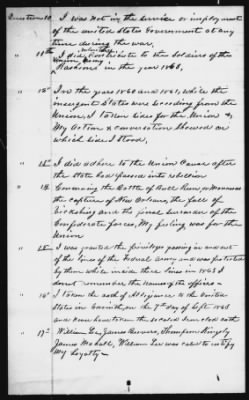 Question 10. I was not in the service or employment
of the united States Government at any
time during the war,
" 11th I did contribute to the Soldiers of the
Union Army
Rations in the year 1863,
" 12 In the years 1860 and 1861, while the
insurgent States were seceding from the
Union, I took sides for the Union &
My Action & conversation showed on
which side I stood,
" I did adhere to the Union Cause after
the State had passed into rebellion
" Concerning the Battle of Bull Run or Manassas
the capture of New Orleans, the fall of
Vicksburg and the final surrender of the
Confederate forces, My feeling was for the
Union
" I was granted the privilege passing in and out
of the lines of the Federal Army and was protected
by them while inside these lines in 1863 I
don't remember the names of the officers
" 16th I taken the oath of Allegiance to the United
States in Corinth, on the 7th day of Sept 1863
and never have taken the so called Iron clad oath
" 17th William Lee, James Bowers, Thompson
James William Lee was called to testify
My Loyalty